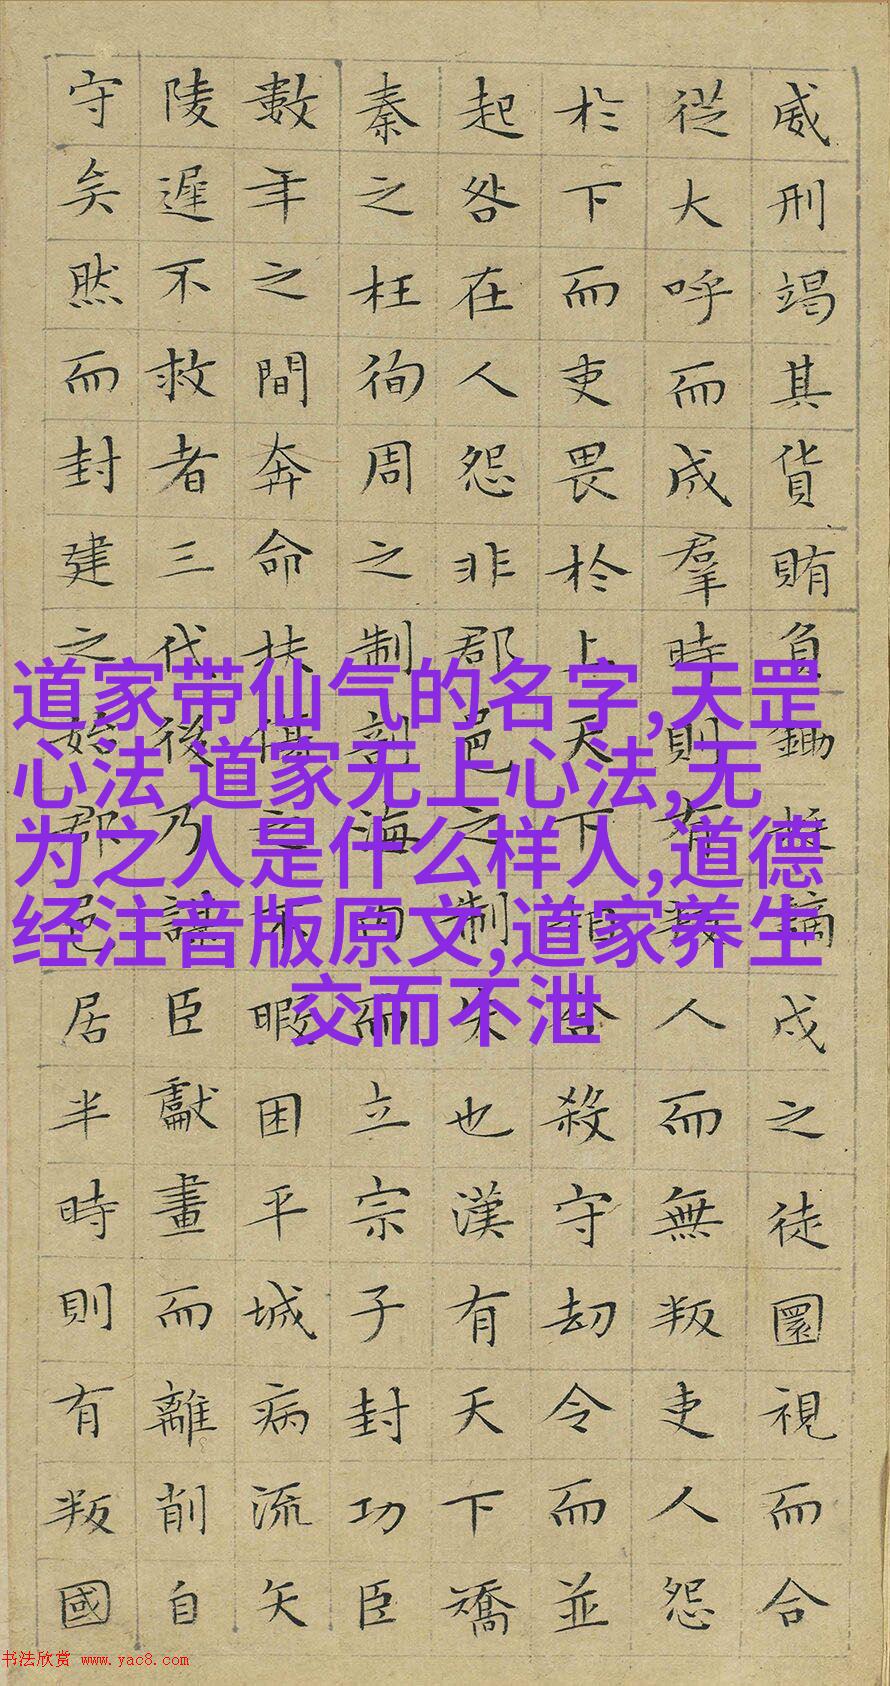 威刑竭其貨賄負鋤梃謫戍之徒圜視而合
從大呼而成羣時則有叛人而無叛吏人怨
於下而吏畏於上天下相合殺守劫令而並
起咎在人怨非郡邑之制失也漢有天下矯
秦之枉徇周之制剖海內而立宗子封功臣
數年之間奔命扶傷之不暇困平城病流矢
陵遲不救者三代後乃謀臣獻畫而離削自
守矣然而封建之始郡邑居半時則有叛國
道家带仙气的名字,天罡
心法 道家无上心法,无
为之人是什么样人,道德
经注音版原文,道家养生
交而不泄
书法欣赏 www.yac8.com